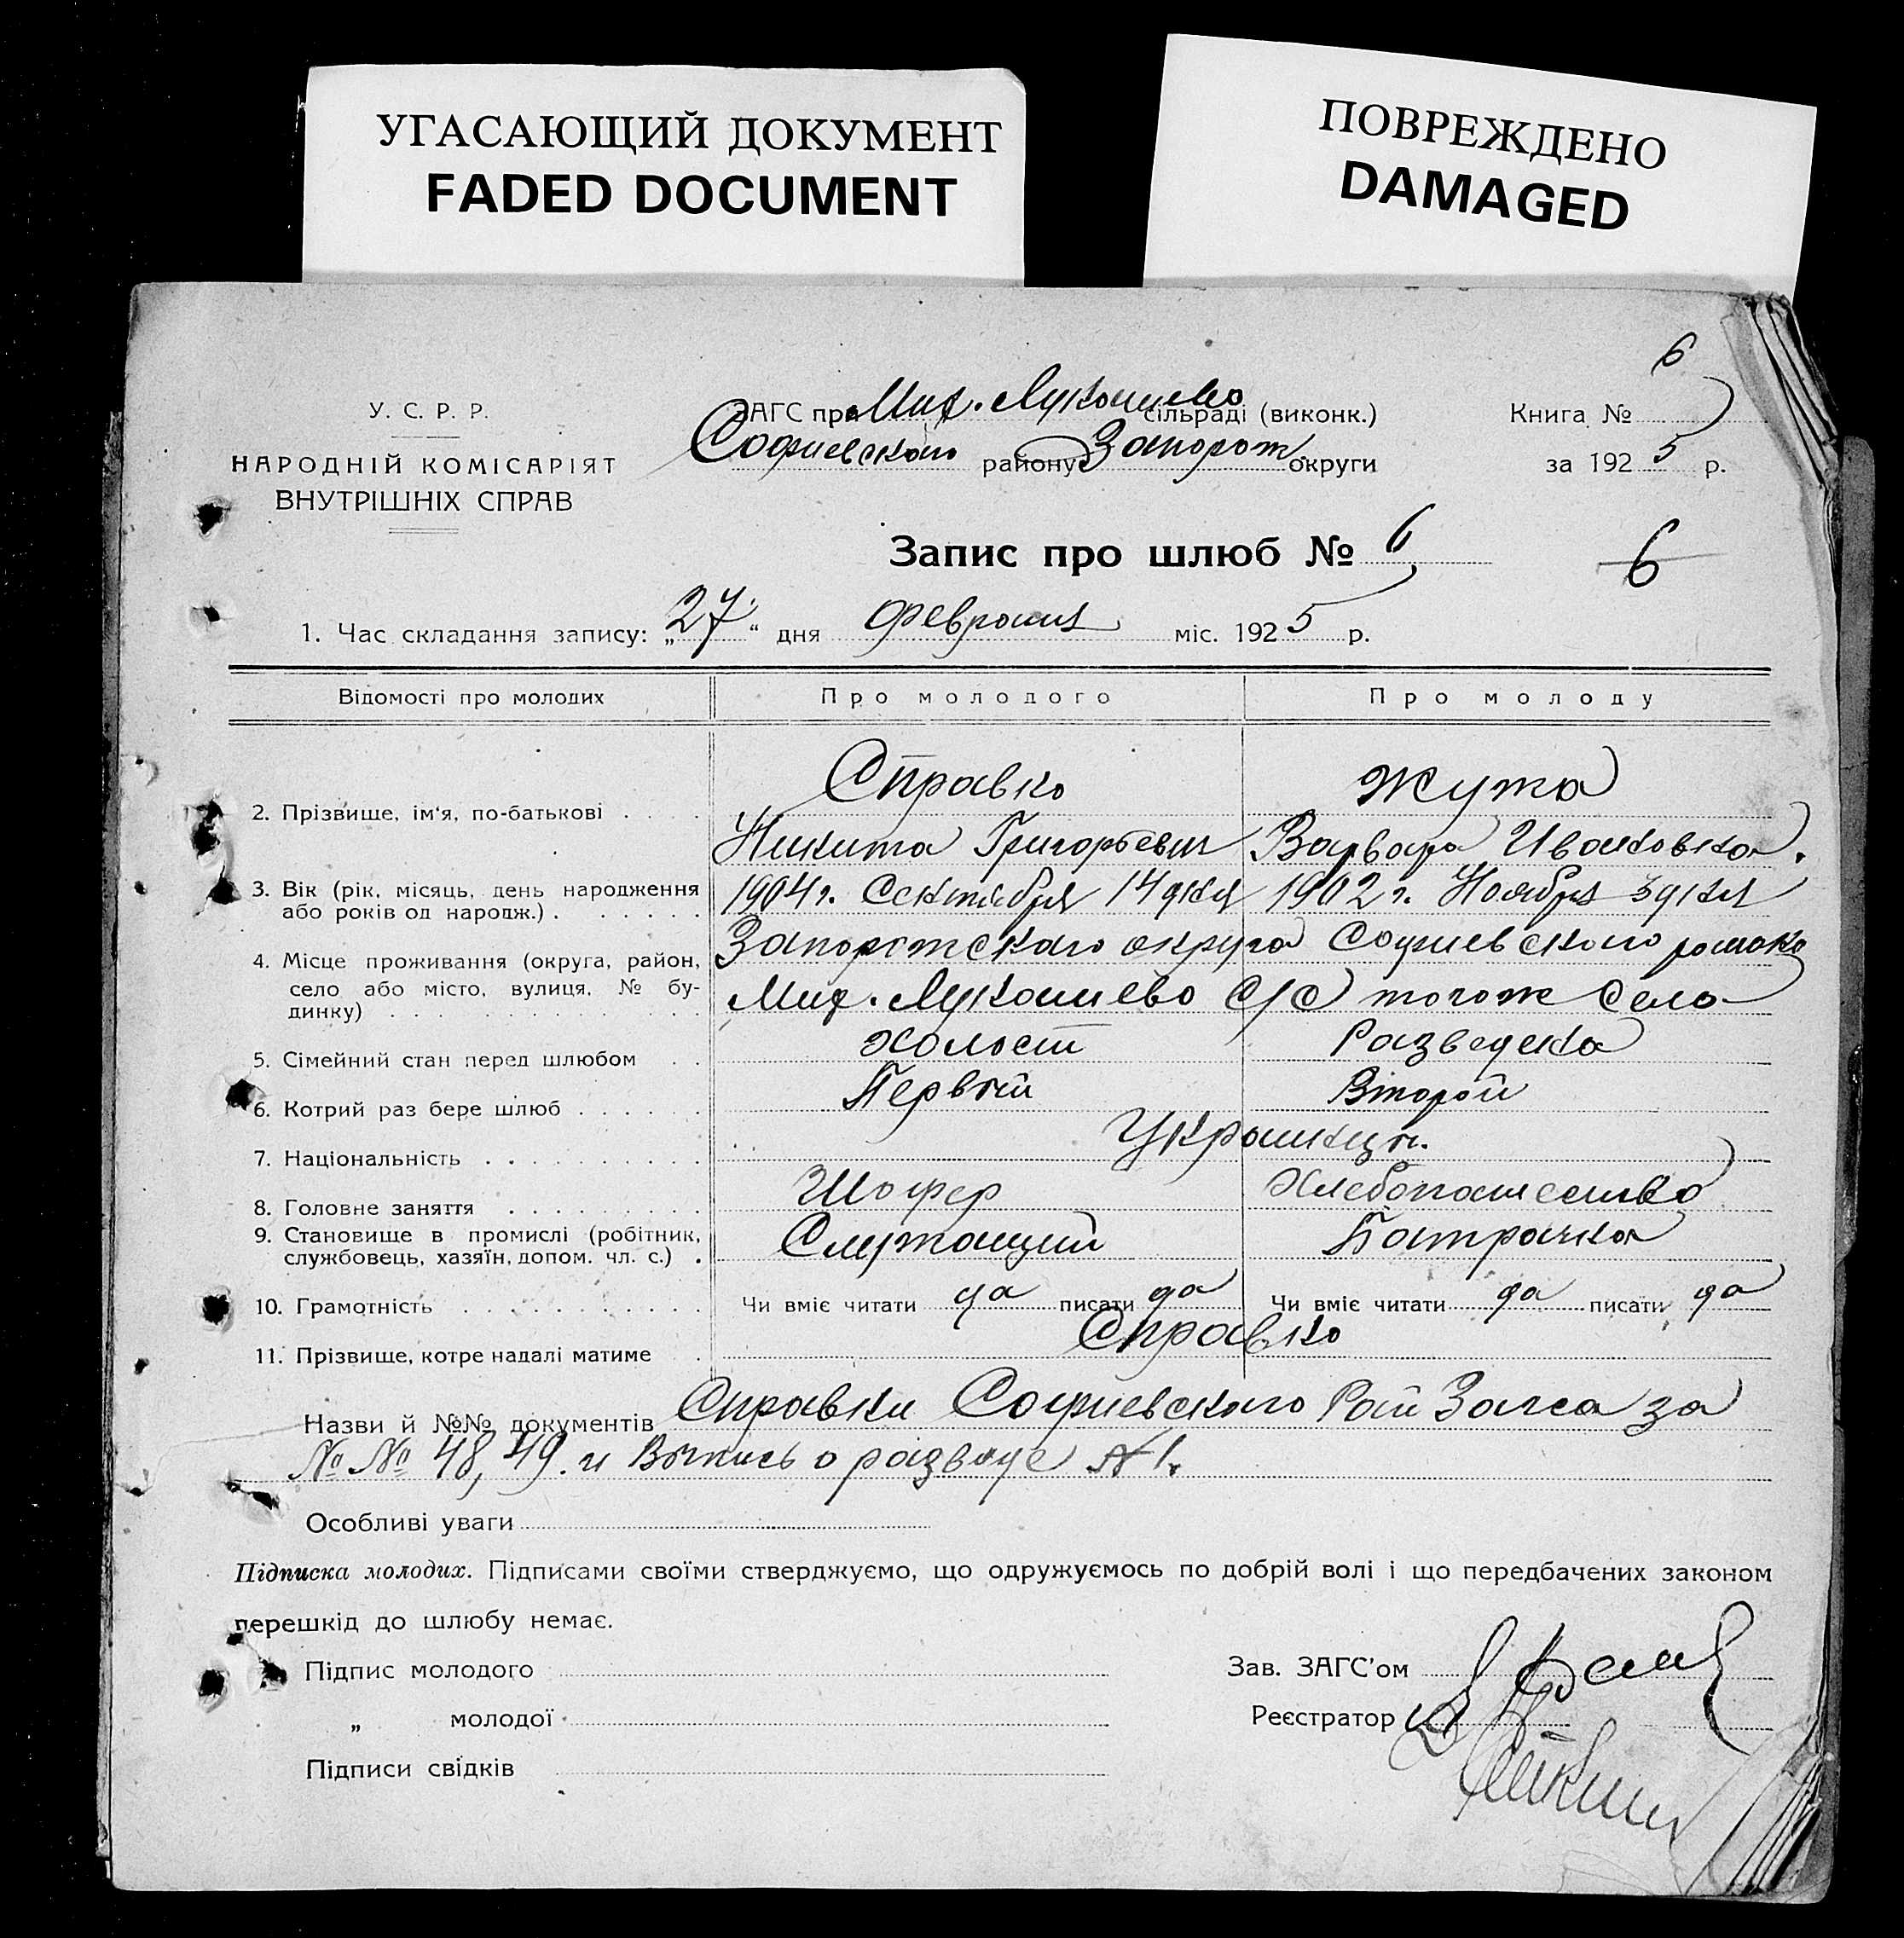 УГАСАЮЩИЙ ДОКУМЕНТ
FADED DOCUMENT
ПОВРЕЖДЕНО
DAMAGED
6
У. С. Р. Р.
НАРОДНІЙ КОМІСАРІЯТ
ВНУТРІШНІХ СПРАВ
ЗАГС при Мих. Лукошево сільраді (виконк.)
Софиевского району Запорож. округи
Книга №
за 1925 р.
Запис про шлюб № 6
6
1. Час складання запису: „27“ дня февраля міс. 1925 р.
Відомості про молодих Про молодого Про молоду
2. Прізвище, ім'я, по-батькові . . . . Справко Жута
Никита Григорьевич Варвара Ивановна.
3. Вік (рік, місяць, день народження або років од народж.) . . . . . . 1904 г. Сентября 14 дня 1902 г. Ноября 3 дня
4. Місце проживання (округа, район, село або місто, вулиця, № будинку) Запорожского округа Софиевского района
Мих. Лукошево С/С тогож села
5. Сімейний стан перед шлюбом . . Холост Разведена
6. Котрий раз бере шлюб . . . . . . Первый Второй
7. Національність . . . . . . . . . . Украинцы.
8. Головне заняття . . . . . . . . . Шофер Хлебопашество
9. Становище в промислі (робітник, службовець, хазяїн, допом. чл. с.) . Служащий Батрачка
10. Грамотність . . . . . . . . . . . Чи вміє читати да писати да Чи вміє читати да писати да
11. Прізвище, котре надалі матиме . Справко
Назви й №№ документів Справки Софиевского Рай Загса за
№№ 48, 49. и Выпись о разводе № 1.
Особливі уваги
Підписка молодих. Підписами своїми стверджуємо, що одружуємось по добрій волі і що передбачених законом
перешкід до шлюбу немає.
Підпис молодого
Зав. ЗАГС'ом
„ молодої
Реєстратор
Підписи свідків